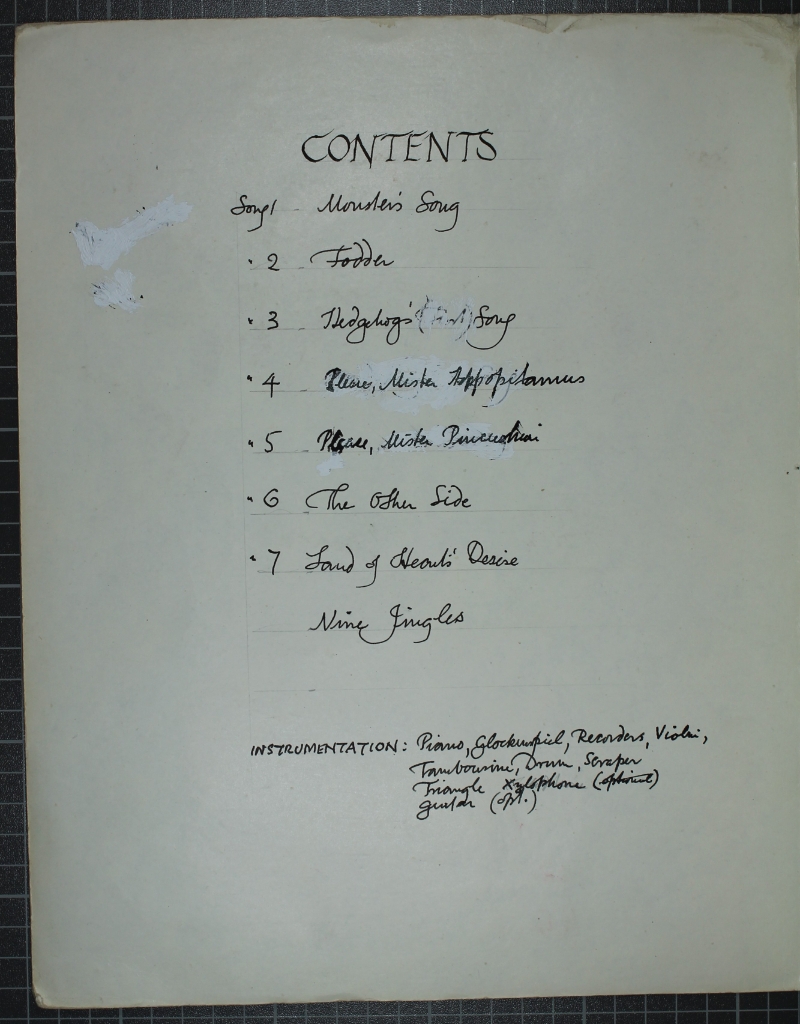 CONTENTS
Song 1 - Monster's Song
" 2 - Fodder
" 3 - Hedgehog's Song
" 4 Please, Mister Hippopotamus
" 5 Please, Mister
" 6 The Other Side
" 7 Land of Heart's Desire
Nine Jingles
INSTRUMENTATION: Piano, Glockenspiel, Recorders, Violin,
Tambourine, Drum, Scraper
Triangle Xylophone (optional)
guitar (opt.)